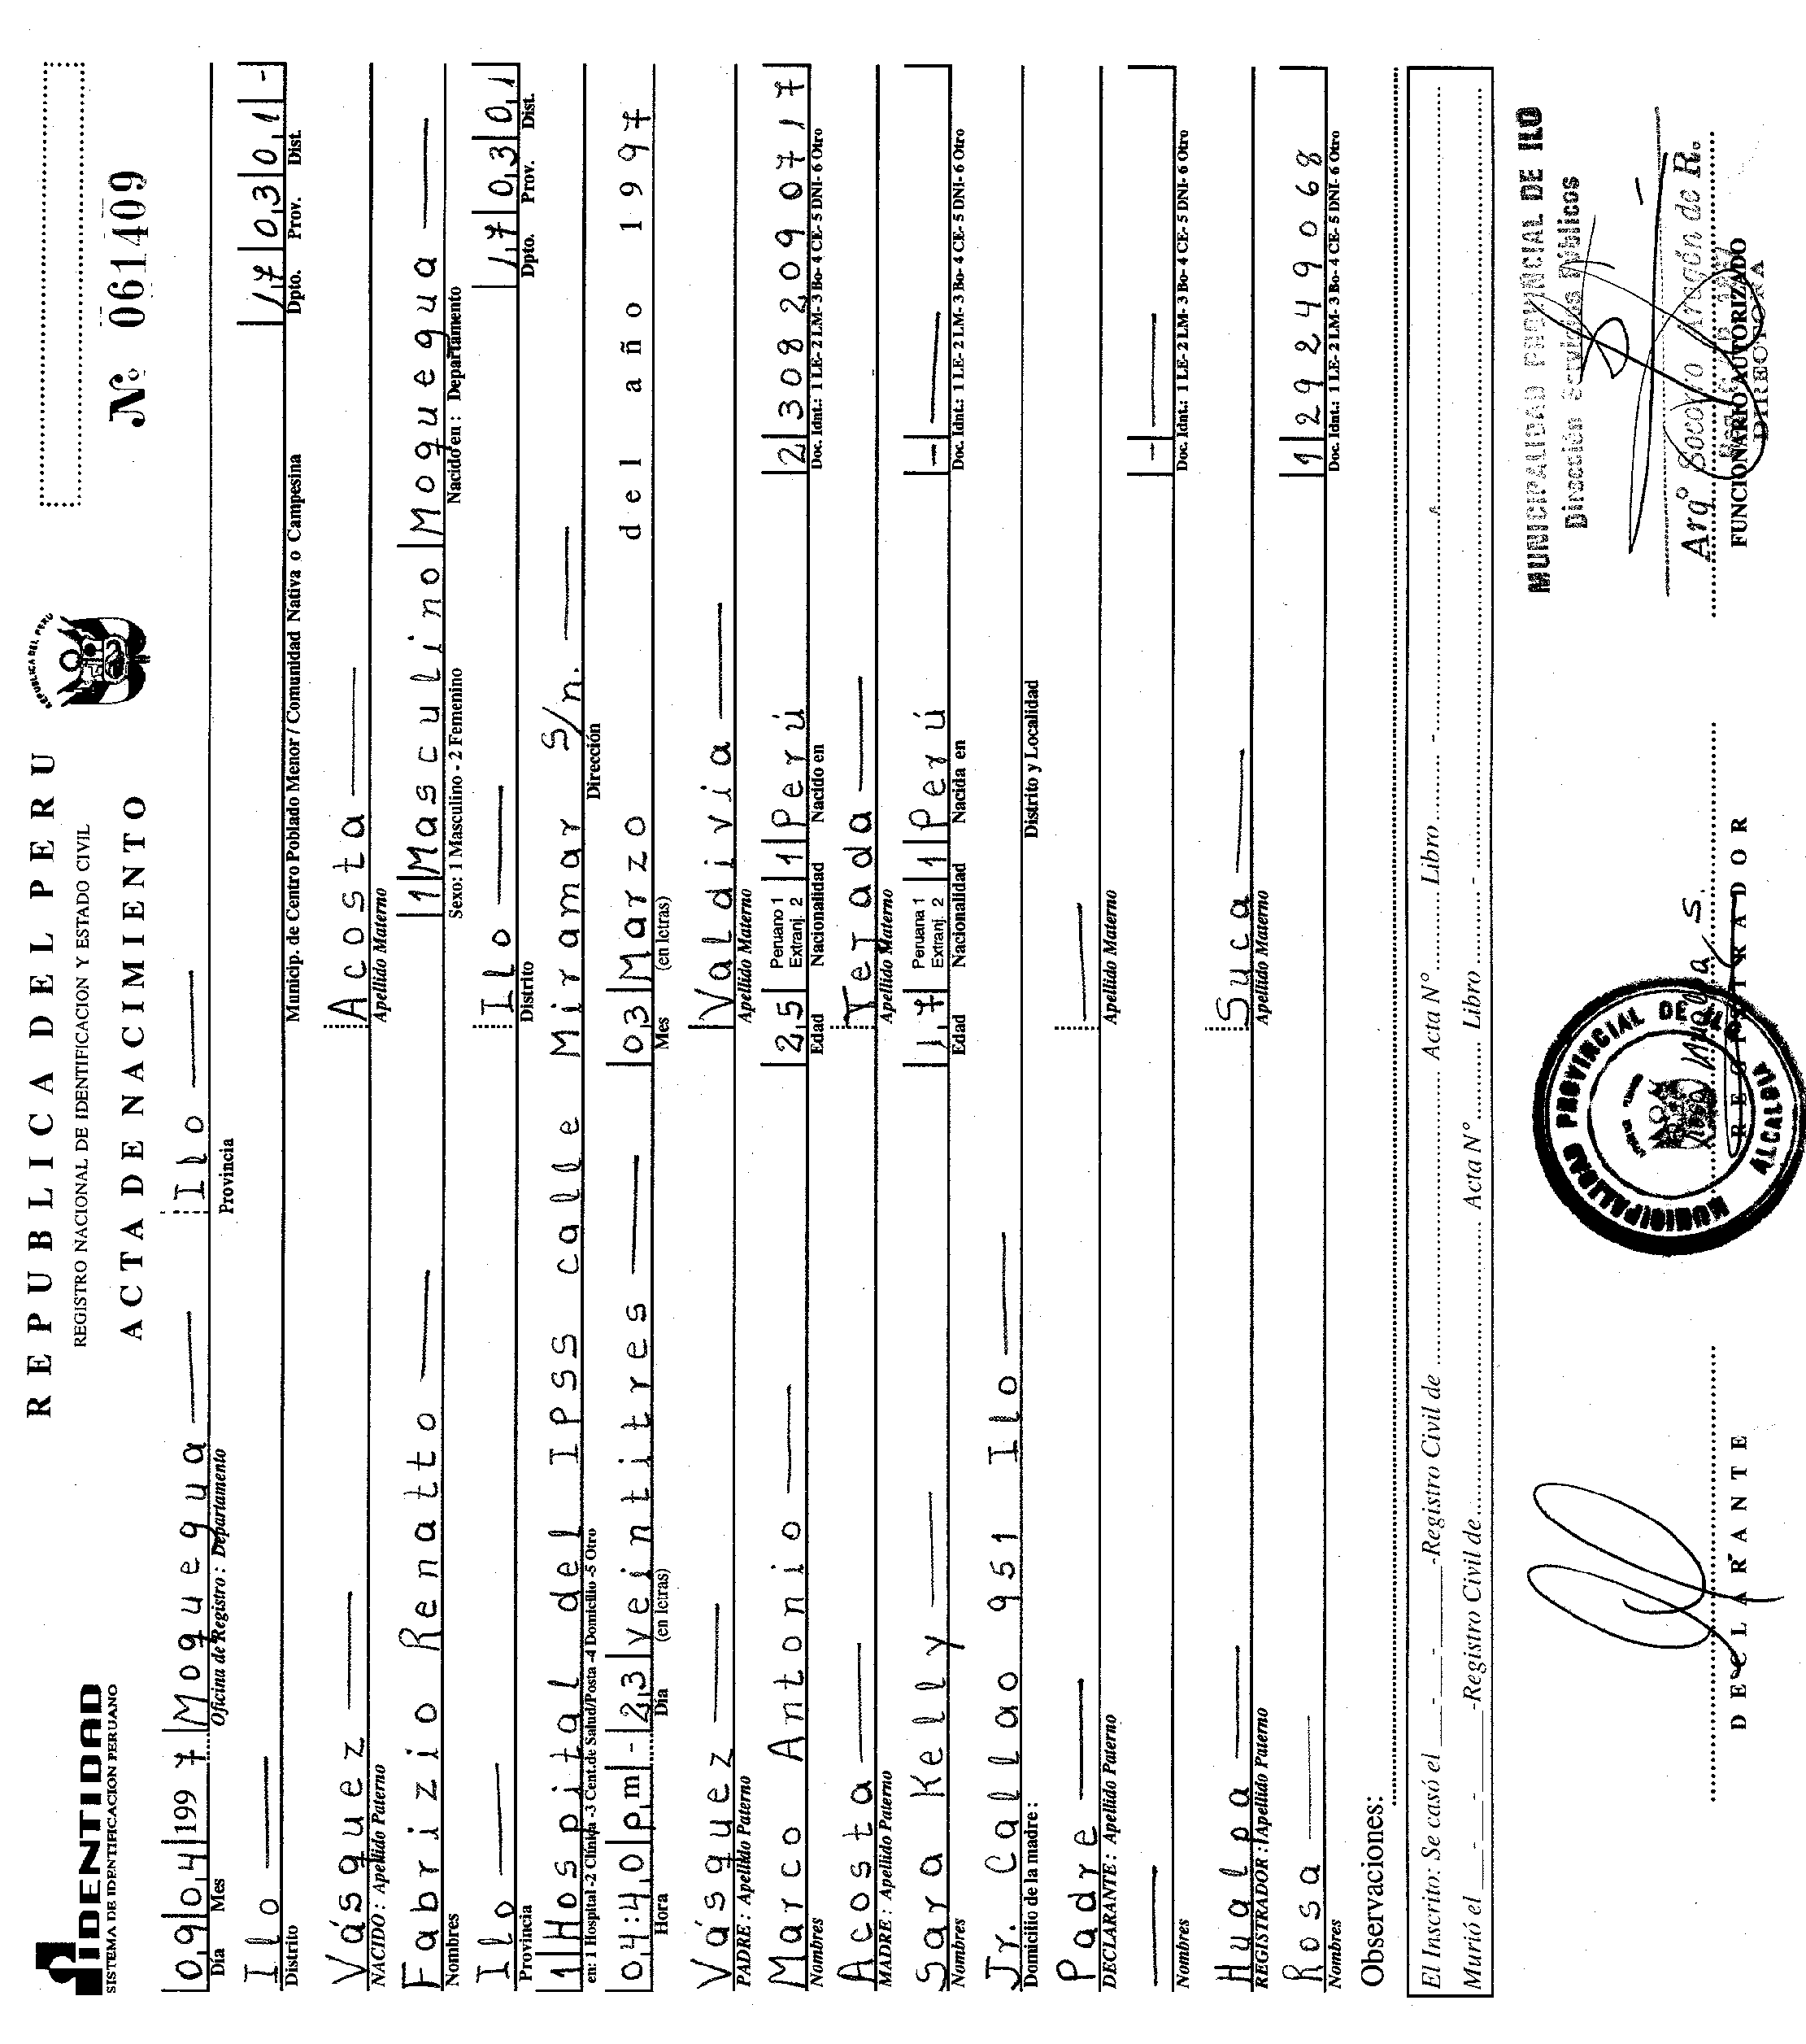 IDENTIDAD
SISTEMA DE IDENTIFICACION PERUANO
REPUBLICA DEL PERU
REGISTRO NACIONAL DE IDENTIFICACION Y ESTADO CIVIL
ACTA DE NACIMIENTO
REPUBLICA DEL PERU
Nº 061409
09 04 1997 Moquegua Ilo
Día Mes Oficina de Registro : Departamento Provincia
Ilo 17 03 01 -
Distrito Municip. de Centro Poblado Menor / Comunidad Nativa o Campesina Dpto. Prov. Dist.
Vásquez Acosta
NACIDO : Apellido Paterno Apellido Materno
Fabrizio Renatto 1 Masculino Moquegua
Nombres Sexo: 1 Masculino - 2 Femenino Nacido en : Departamento
Ilo Ilo 17 03 01
Provincia Distrito Dpto. Prov. Dist.
1 Hospital del IPSS calle Miramar S/n.
en: 1 Hospital -2 Clínica -3 Cent.de Salud/Posta -4 Domicilio -5 Otro Dirección
04:40 pm - 23 veintitres 03 Marzo del año 1997
Hora Día (en letras) Mes (en letras)
Vásquez Valdivia
PADRE : Apellido Paterno Apellido Materno
Marco Antonio 25 Peruano 1 Extranj. 2 1 Perú 2 308209071 7
Nombres Edad Nacionalidad Nacido en Doc. Idnt.: 1 LE- 2 LM- 3 Bo- 4 CE- 5 DNI- 6 Otro
Acosta Tejada
MADRE : Apellido Paterno Apellido Materno
Sara Kelly 17 Peruana 1 Extranj. 2 1 Perú -
Nombres Edad Nacionalidad Nacida en Doc. Idnt.: 1 LE- 2 LM- 3 Bo- 4 CE- 5 DNI- 6 Otro
Jr. Callao 951 Ilo
Domicilio de la madre : Distrito y Localidad
Padre
DECLARANTE : Apellido Paterno Apellido Materno
-
Nombres Doc. Idnt.: 1 LE- 2 LM- 3 Bo- 4 CE- 5 DNI- 6 Otro
Hualpa Suca
REGISTRADOR : Apellido Paterno Apellido Materno
Rosa 1 29249068
Nombres Doc. Idnt.: 1 LE- 2 LM- 3 Bo- 4 CE- 5 DNI- 6 Otro
Observaciones:
El Inscrito: Se casó el - - -Registro Civil de Acta Nº Libro -
Murió el - - -Registro Civil de Acta Nº Libro -
MUNICIPALIDAD PROVINCIAL DE ILO
Dirección Servicios Públicos
MUNICIPALIDAD PROVINCIAL DE ILO
ALCALDIA
Arqº Socorro Aragón de R.
DECLARANTE REGISTRADOR FUNCIONARIO AUTORIZADO
DIRECTORA